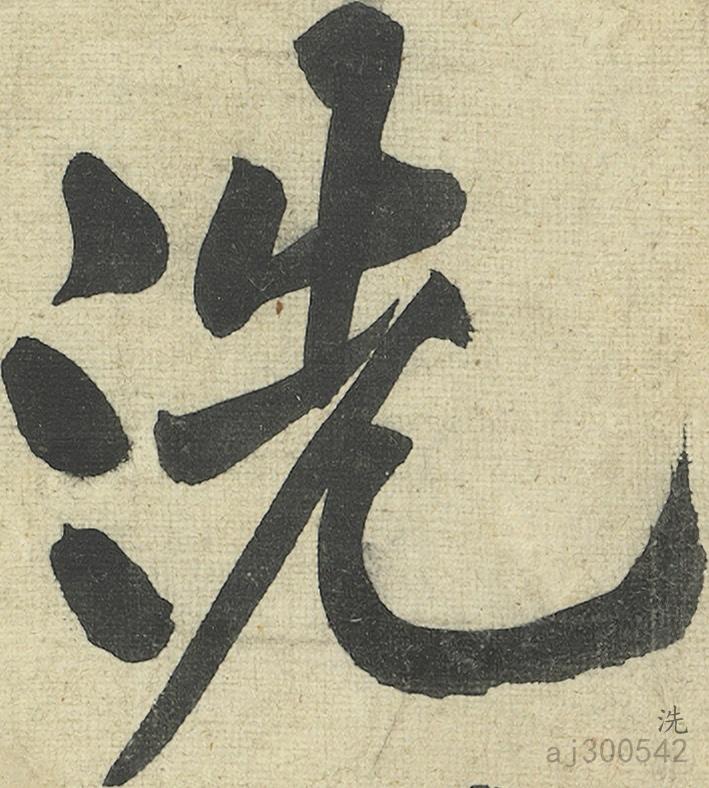 洗
洗
aj300542